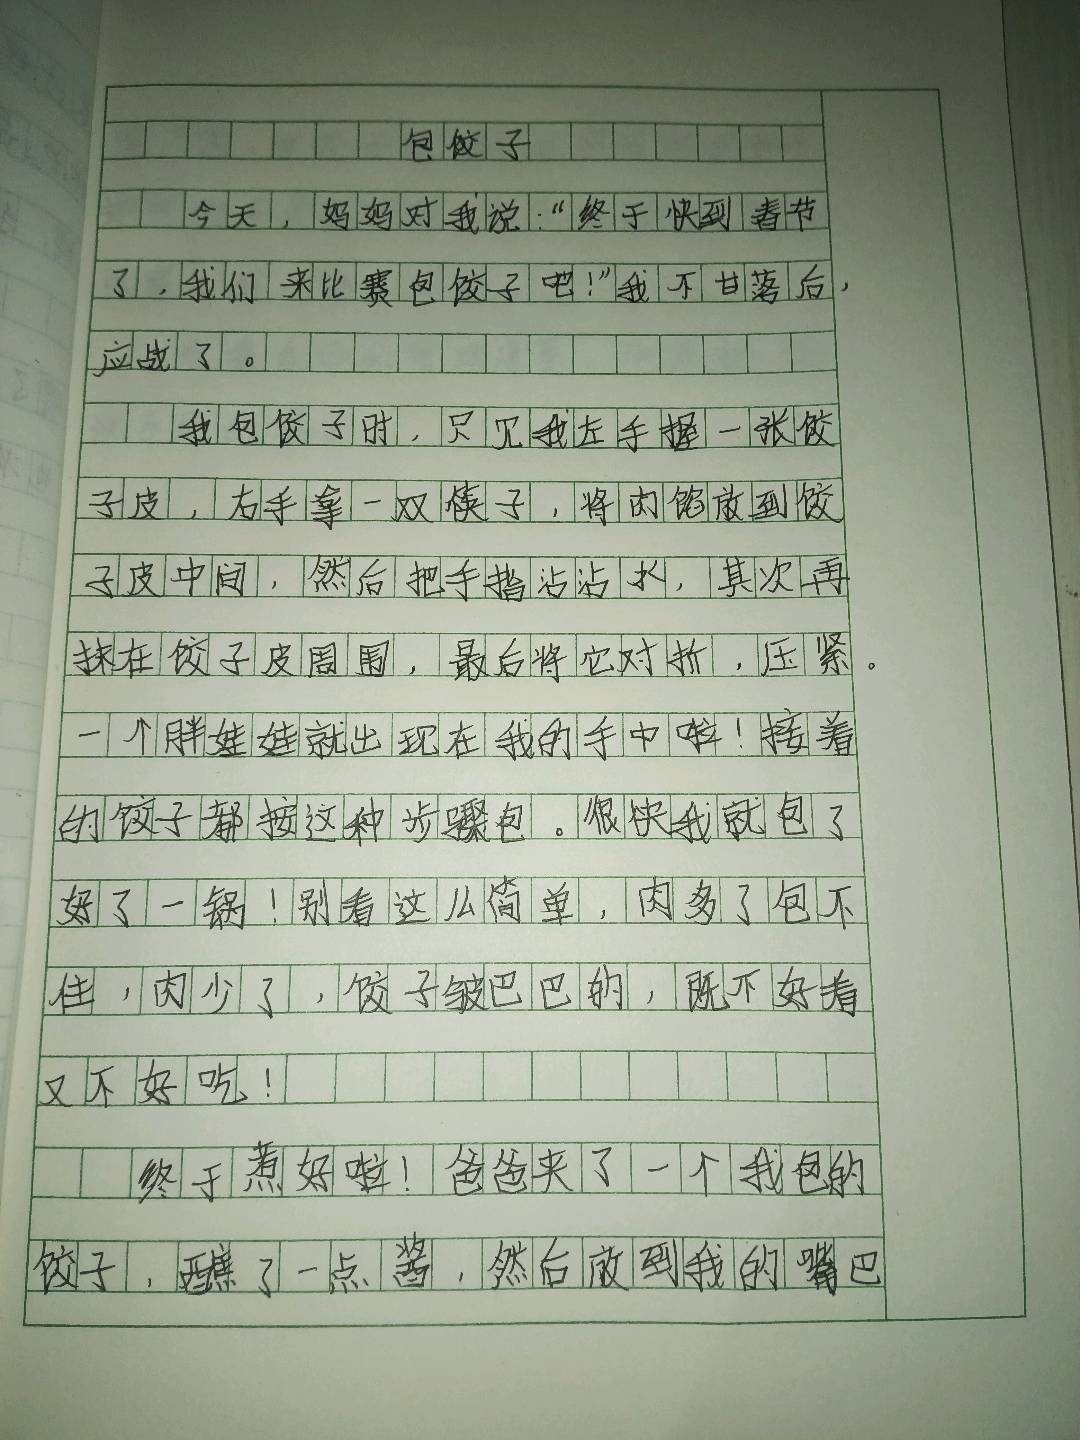 包饺子
今天，妈妈对我说：“终于快到春节
了，我们来比赛包饺子吧！”我不甘落后，
应战了。
我包饺子时，只见我左手握一张饺
子皮，右手拿一双筷子，将肉馅放到饺
子皮中间，然后把手指沾沾水，其次再
抹在饺子皮周围，最后将它对折，压紧。
一个胖娃娃就出现在我的手中啦！接着
的饺子都按这种步骤包。很快我就包了
好了一锅！别看这么简单，肉多了包不
住，肉少了，饺子皱巴巴的，既不好看
又不好吃！
终于煮好啦！爸爸夹了一个我包的
饺子，蘸了一点酱，然后放到我的嘴巴